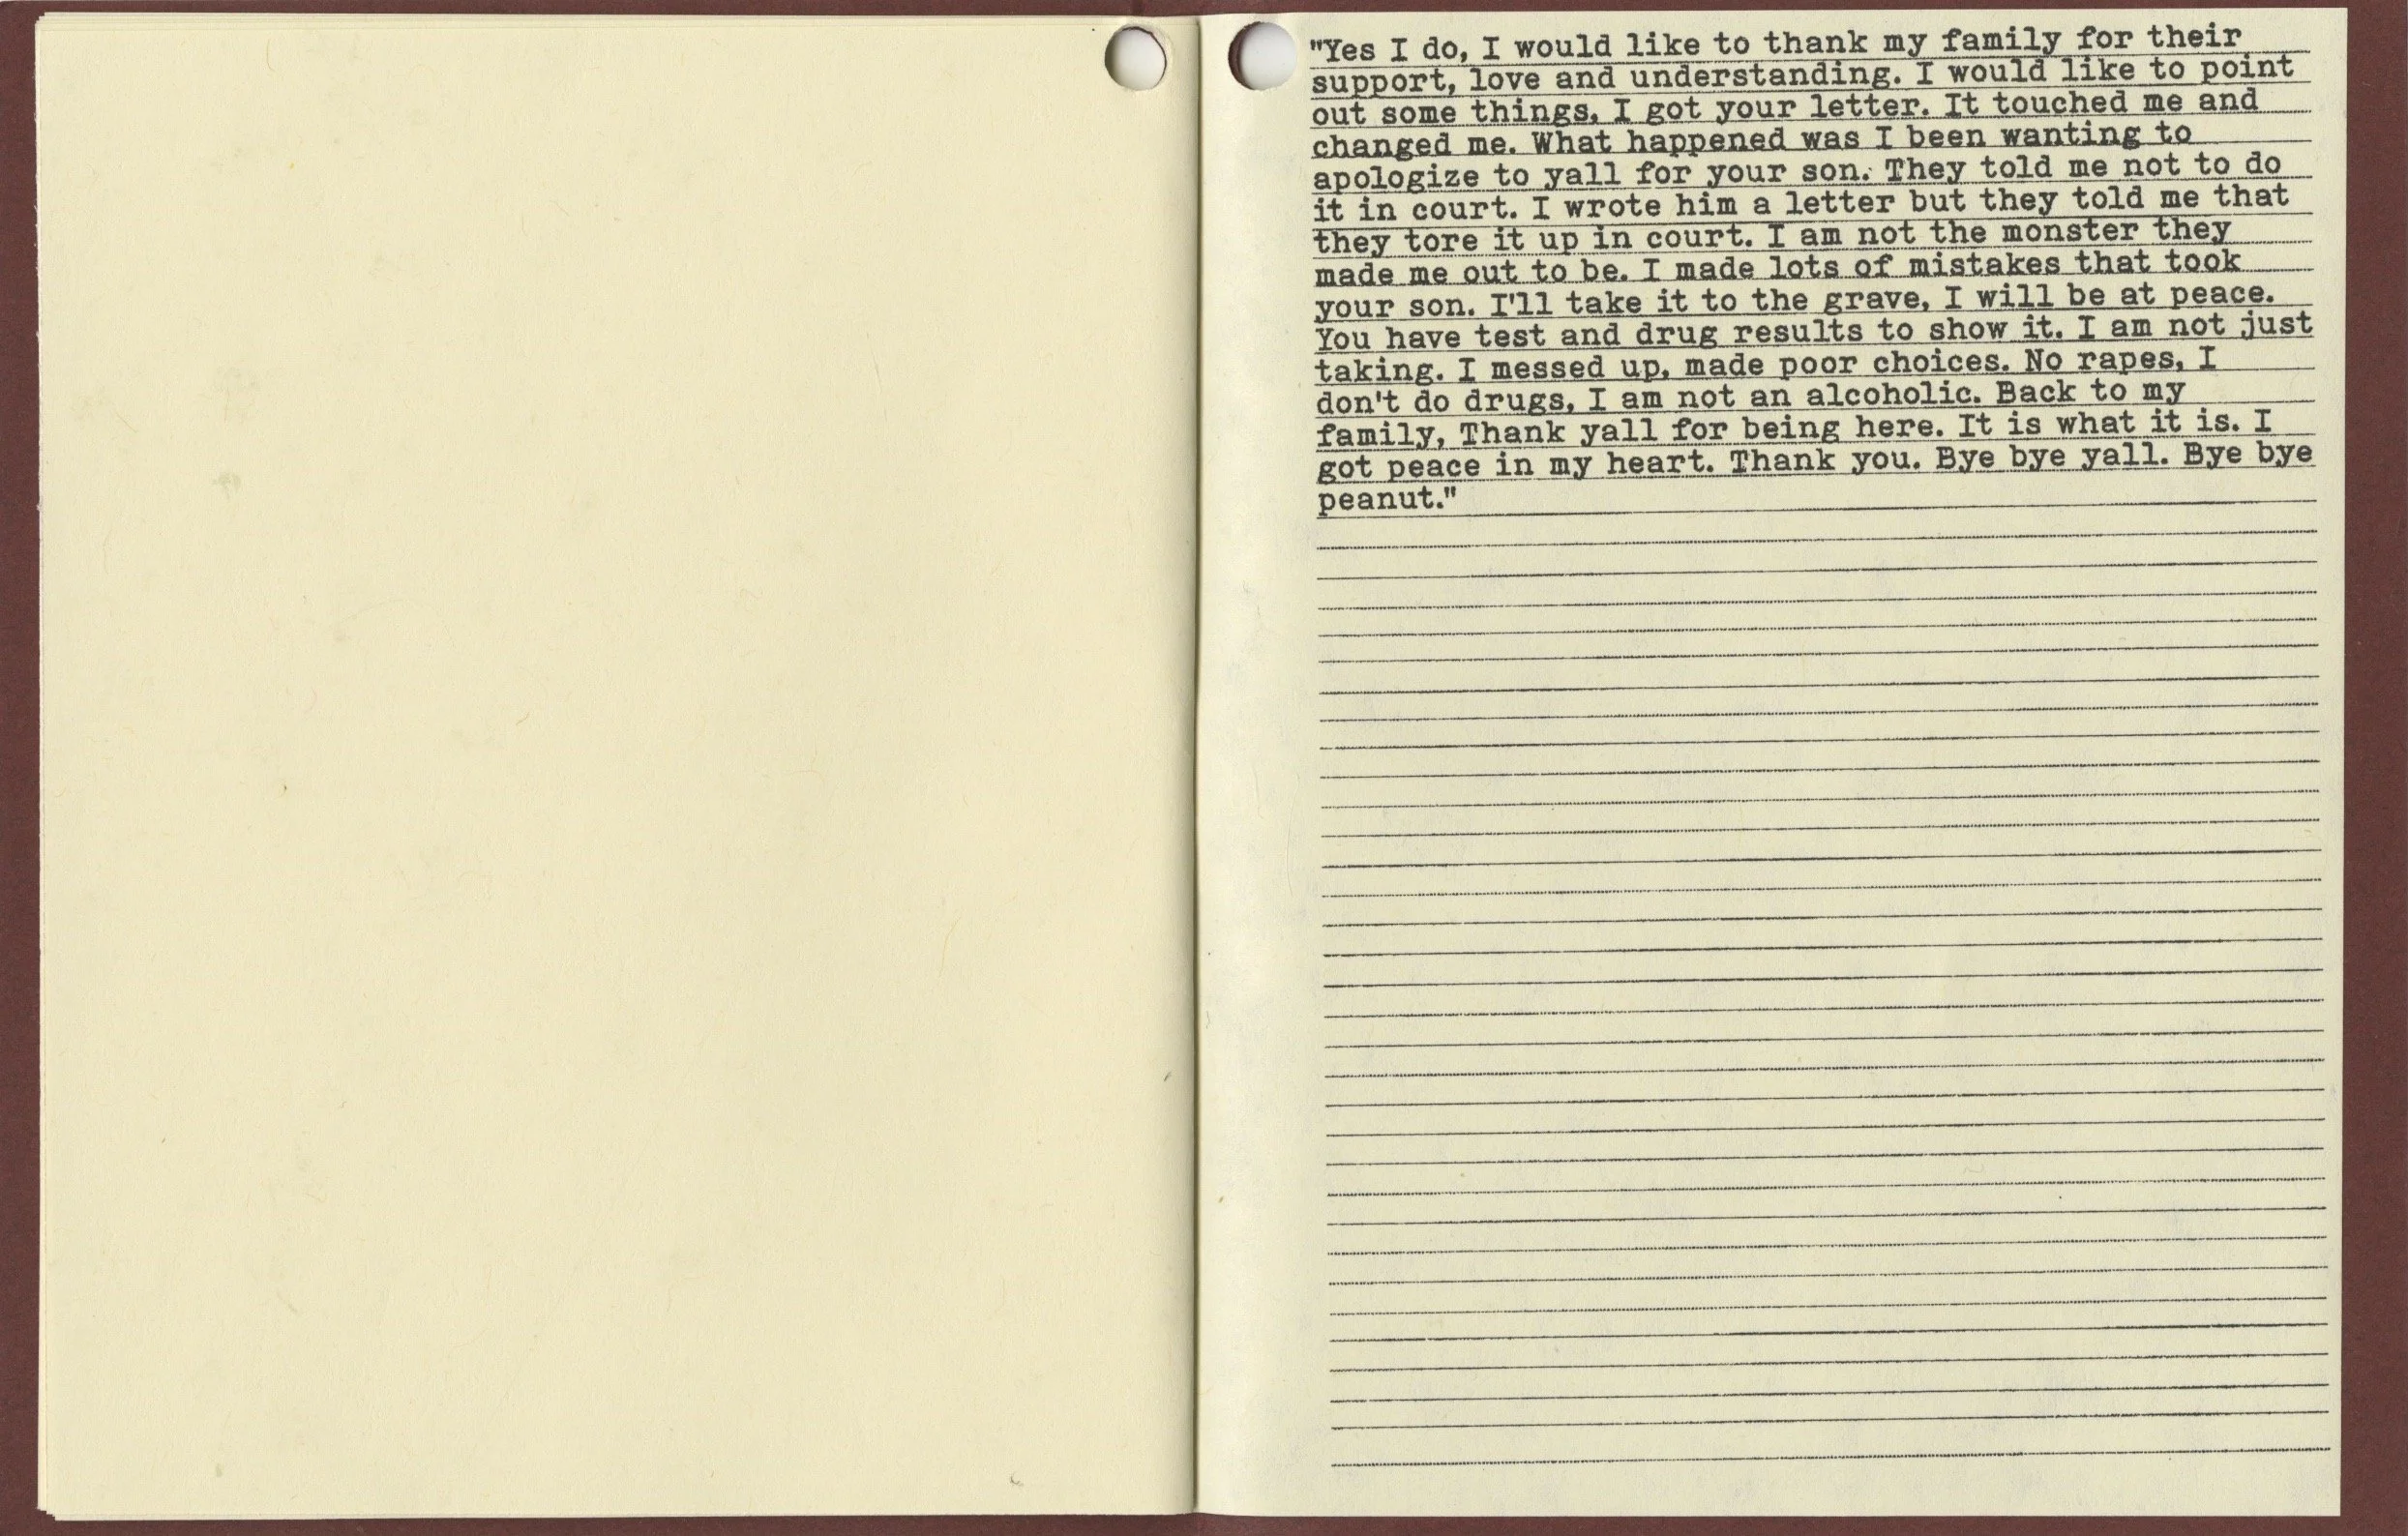 "Yes I do, I would like to thank my family for their
support, love and understanding. I would like to point
out some things, I got your letter. It touched me and
changed me. What happened was I been wanting to
apologize to yall for your son. They told me not to do
it in court. I wrote him a letter but they told me that
they tore it up in court. I am not the monster they
made me out to be. I made lots of mistakes that took
your son. I'll take it to the grave, I will be at peace.
You have test and drug results to show it. I am not just
taking. I messed up, made poor choices. No rapes, I
don't do drugs, I am not an alcoholic. Back to my
family, Thank yall for being here. It is what it is. I
got peace in my heart. Thank you. Bye bye yall. Bye bye
peanut."